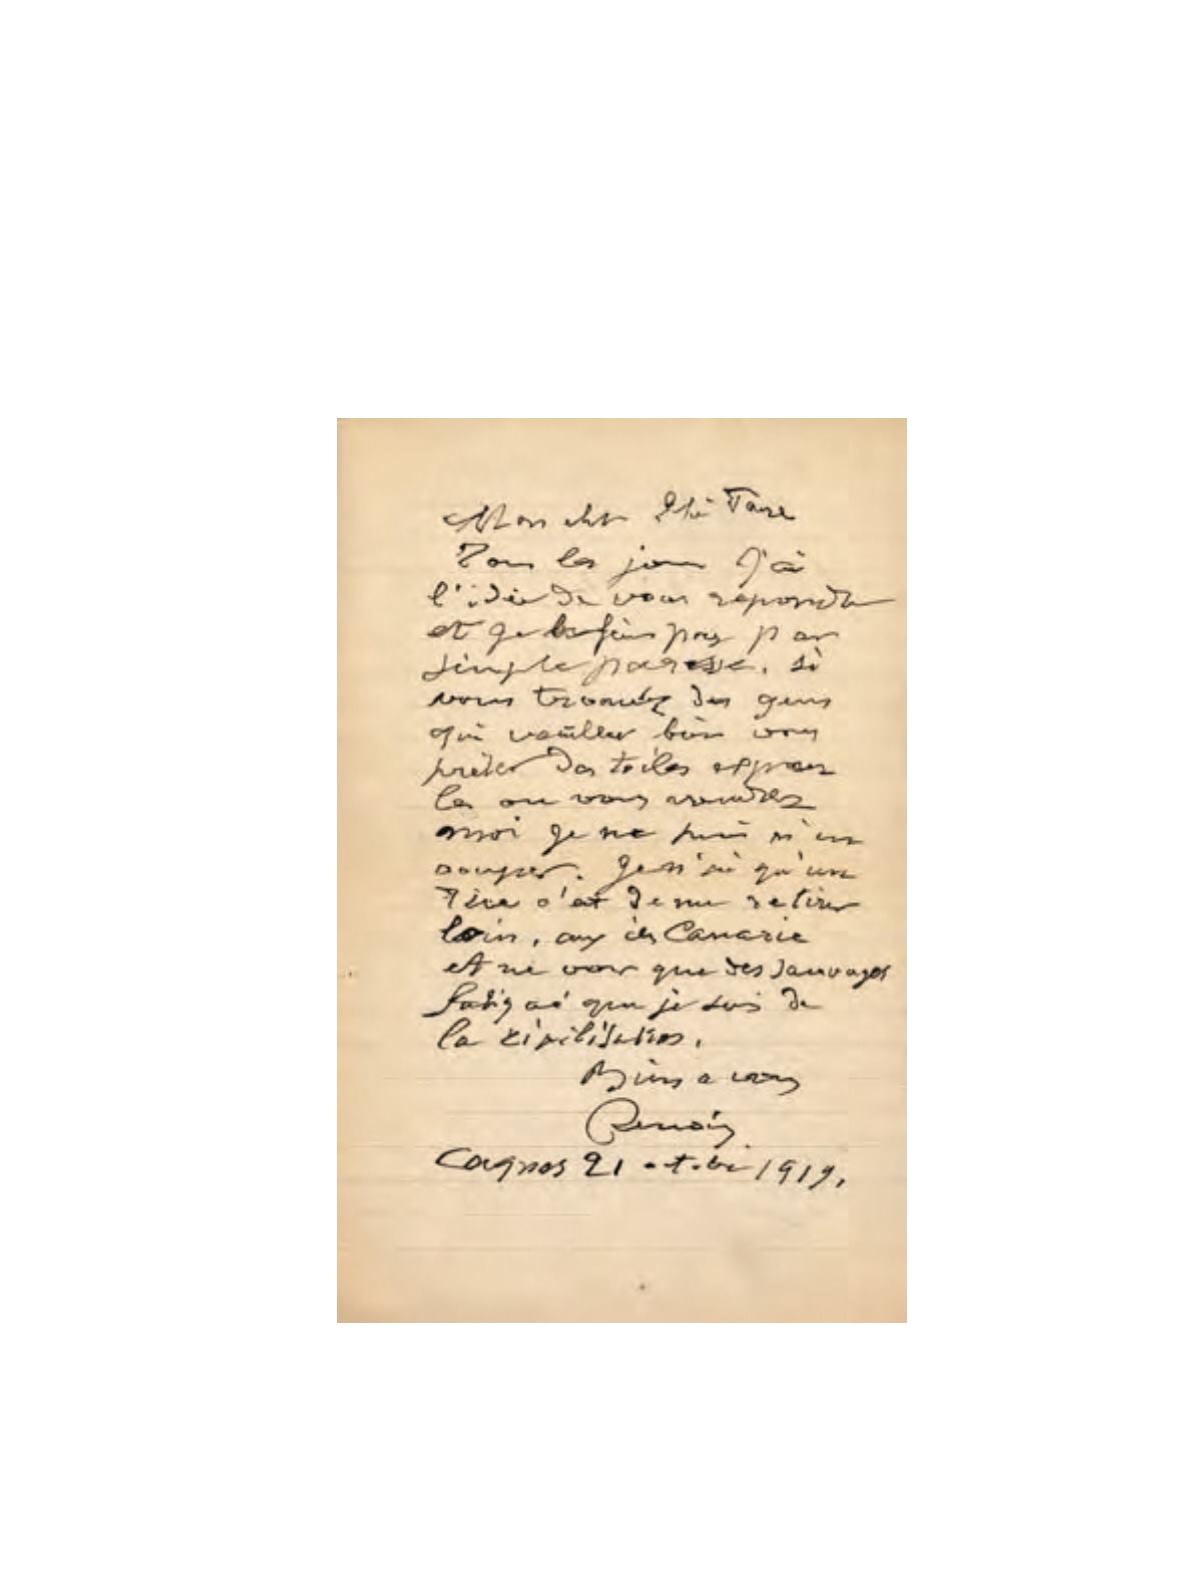 Mon cher
Tous les jours j'ai
l'idée de vous repondre
et je le fais pas par
simple paresse. si
vous trouvez des gens
qui veuillent bien vous
prêter des toiles exposez
les ou vous voudrez
moi je ne puis m'en
occuper. Je n'ai qu'un
rêve c'est de me retirer
loin, aux iles Canarie
et ne voir que des sauvages
fatigué que je suis de
la civilisation.
Bien a vous
Renoir
Cagnes 21 octobre 1919.